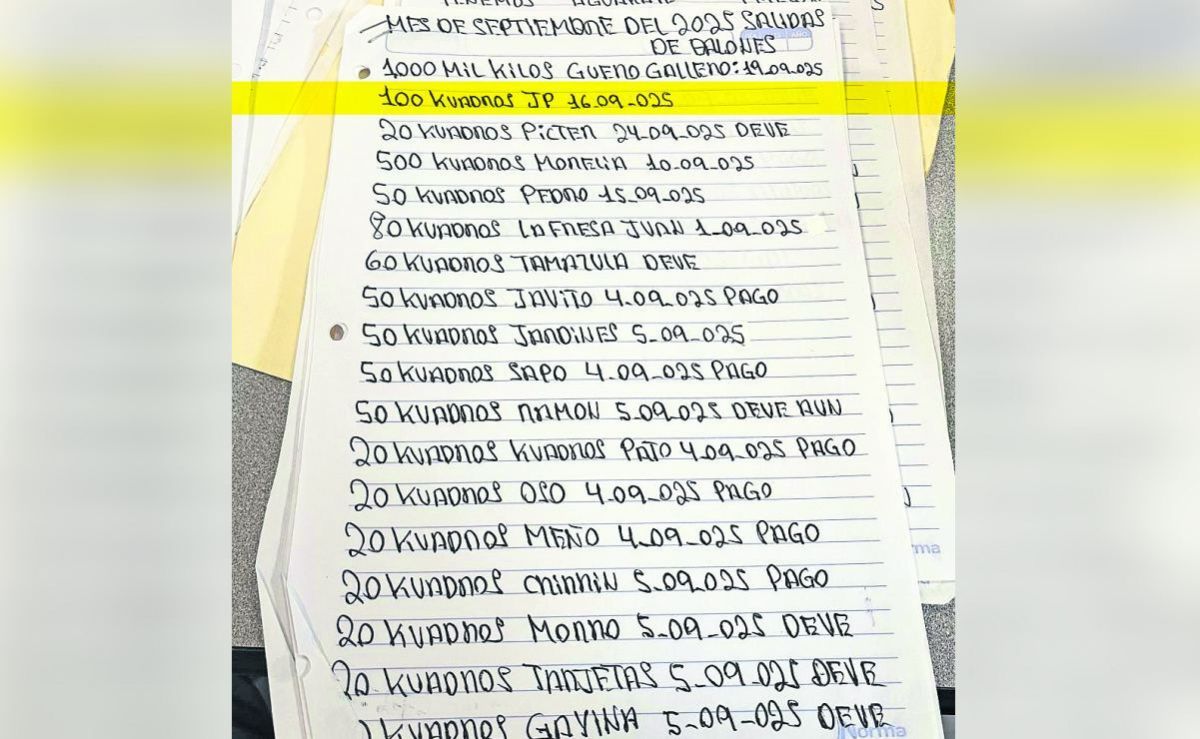 MES DE SEPTIEMBRE DEL 2025 SALIDAS
DE BALONES
1000 MIL KILOS GUERO GALLERO: 19_09_025
100 KUADROS JP 16_09_025
20 KUADROS PICTER 24_09_025 DEVE
500 KUADROS MORELIA 10_09_025
50 KUADROS PEDRO 15_09_025
80 KUADROS LA FRESA JUAN 1_09_025
60 KUADROS TAMAZULA DEVE
50 KUADROS JAVITO 4_09_025 PAGO
50 KUADROS JARDINES 5_09_025
50 KUADROS SAPO 4_09_025 PAGO
50 KUADROS RAMON 5_09_025 DEVE AUN
20 KUADROS KUADROS PATO 4_09_025 PAGO
20 KUADROS OSO 4_09_025 PAGO
20 KUADROS MEÑO 4_09_025 PAGO
20 KUADROS CHIRRIN 5_09_025 PAGO
20 KUADROS MORRO 5_09_025 DEVE
20 KUADROS TARJETAS 5_09_025 DEVE
KUADROS GAVINA 5_09_025 DEVE
Norma